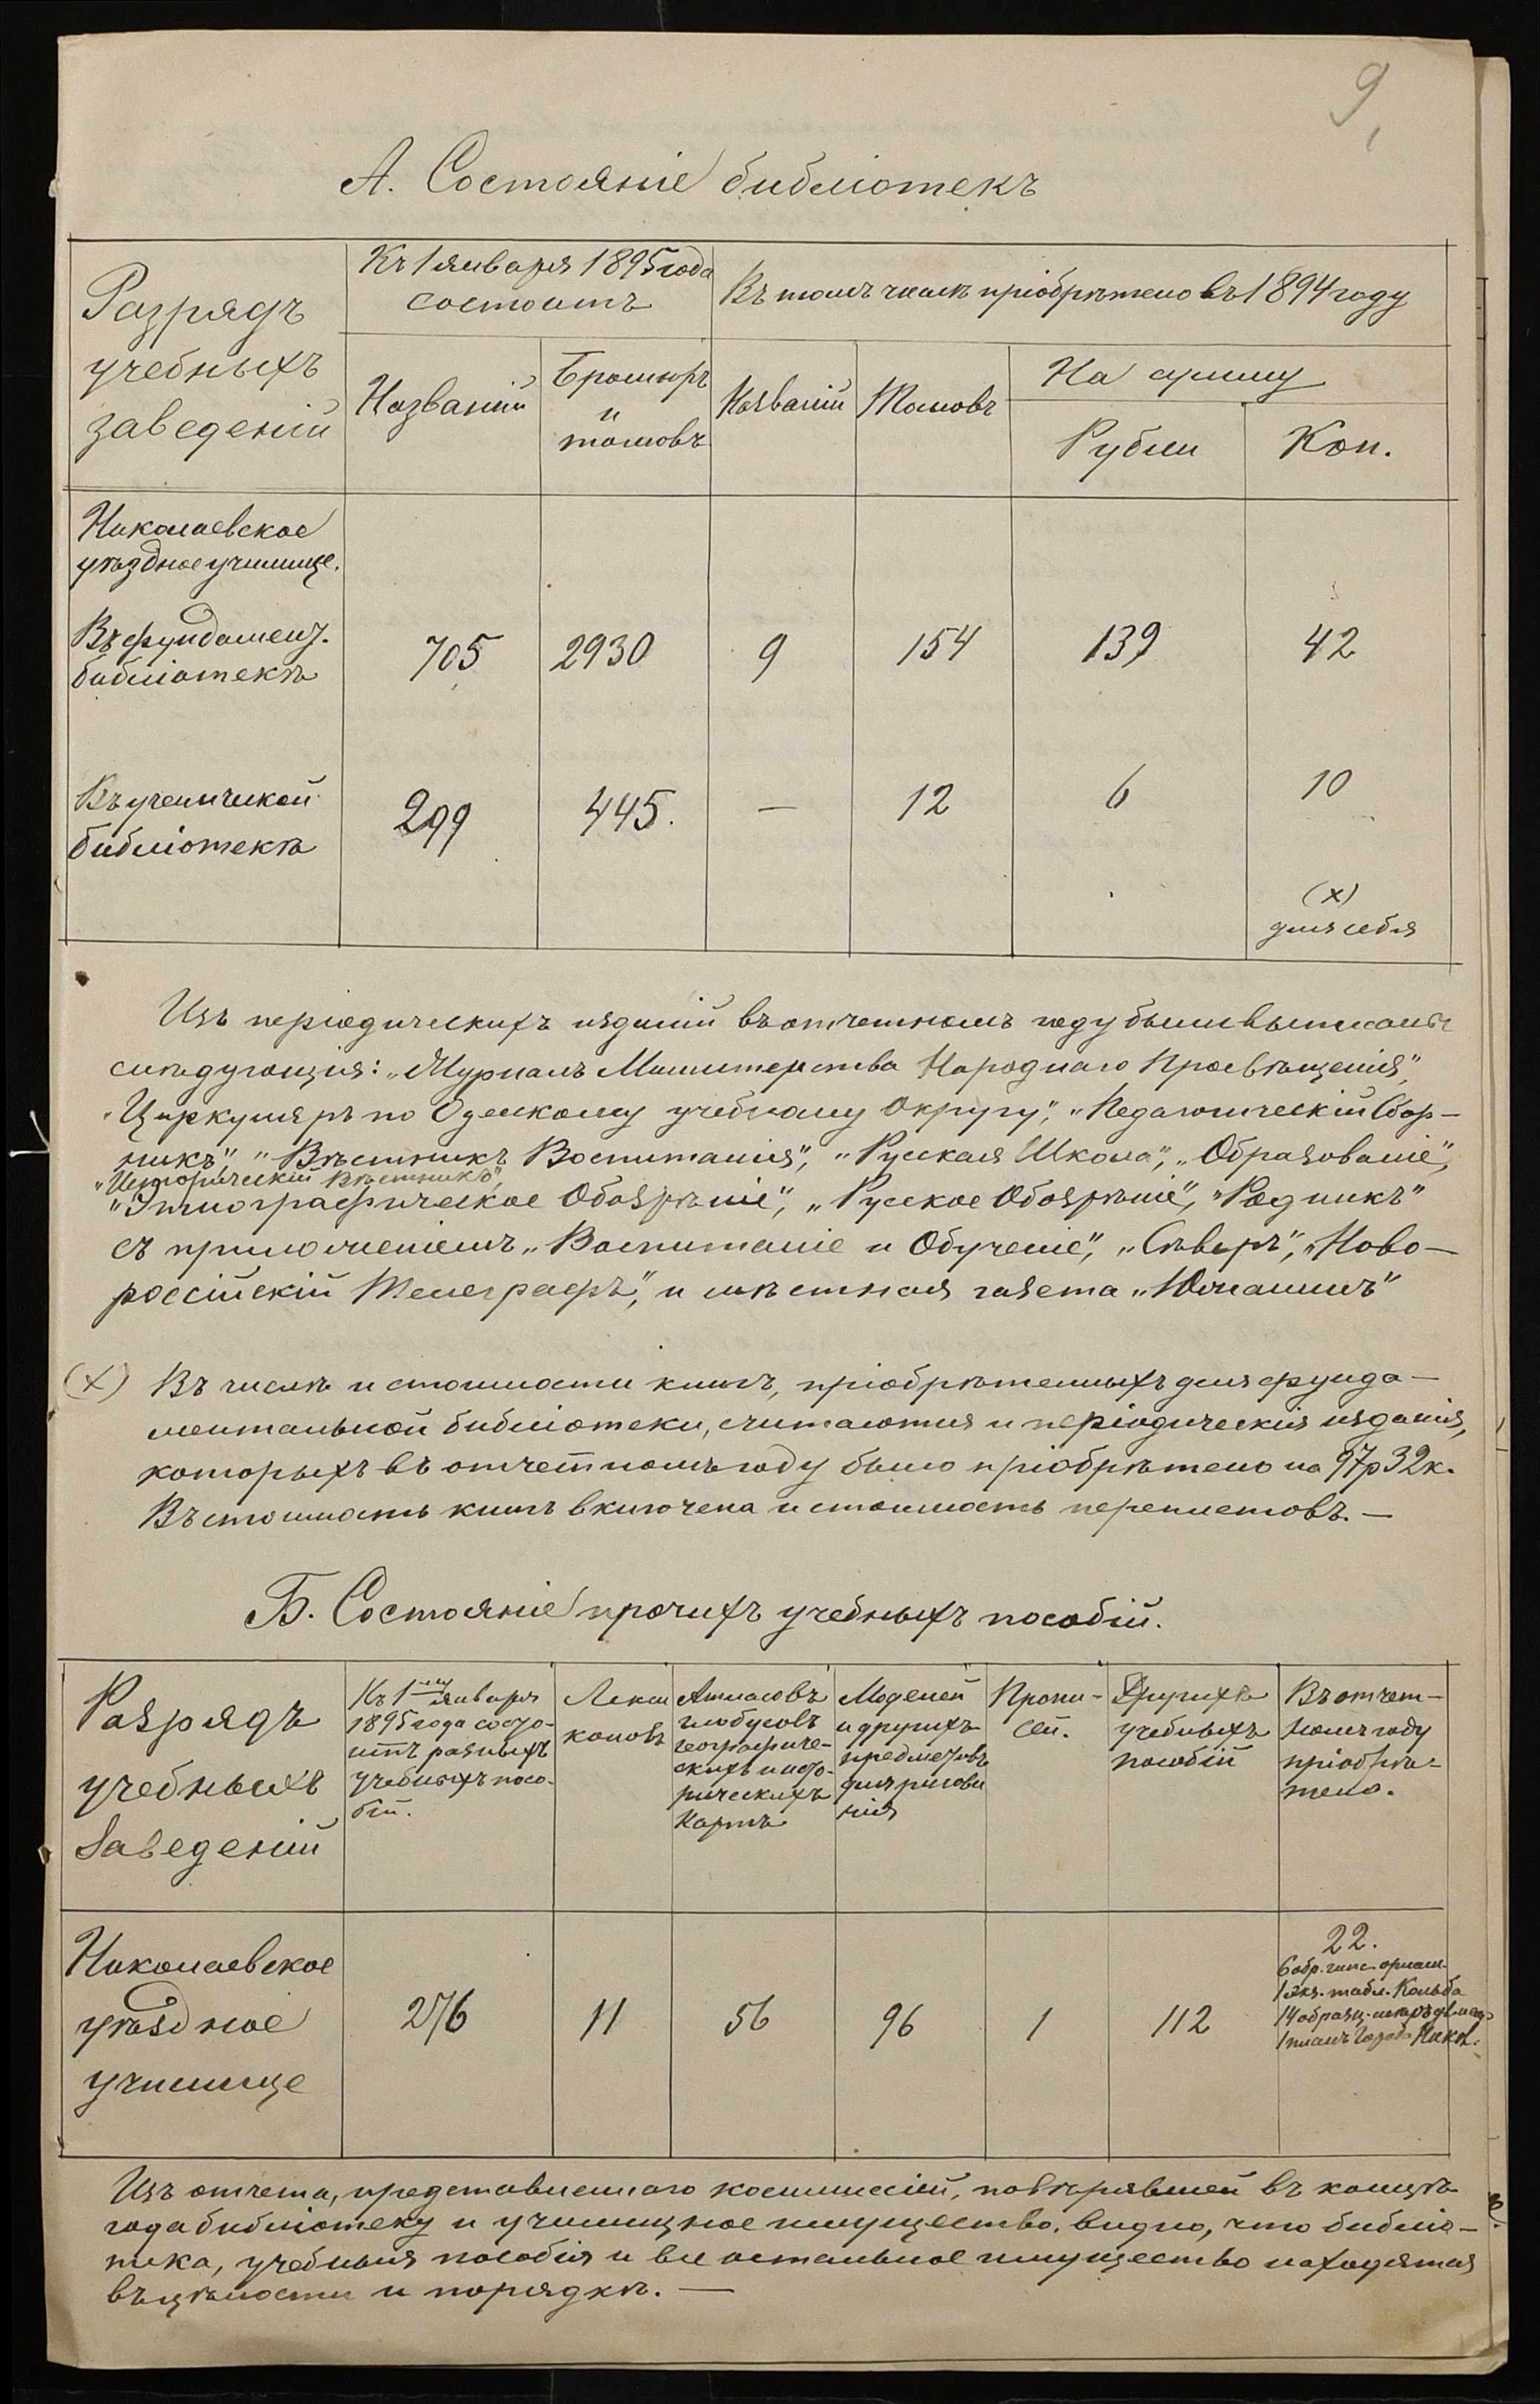 9
А. Состояніе библіотекъ
Разрядъ учебныхъ заведеній
Къ 1 января 1895 года
состоитъ
Въ томъ числѣ пріобрѣтено въ 1894 году
Названій
Брошюръ
и
томовъ
Названій
Томовъ
На сумму
Рубли
Коп.
Николаевское
уѣздное училище.
Въ фундамент.
библіотекѣ
705 2930 9 154 139 42
Въ ученической
библіотекѣ
299 445. — 12 6 10
(х)
для себя
Изъ періодическихъ изданій въ отчетномъ году были выписаны
слѣдующія: „Журналъ Министерства Народнаго Просвѣщенія",
„Циркуляръ по Одескому учебному Округу", „Педагогическій Сбор-
никъ" „Вѣстникъ Воспитанія", „Русская Школа", „Образованіе",
„Историческій Вѣстникъ",
„Этнографическое Обозрѣніе", „Русское Обозрѣніе", „Родникъ"
съ приложеніемъ „Воспитаніе и Обученіе", „Сѣверъ", „Ново-
россійскій Телеграфъ", и мѣстная газета „Южанинъ"
(х) Въ числѣ и стоимости книгъ, пріобрѣтенныхъ для фунда-
ментальной библіотеки, считаются и періодическія изданія,
которыхъ въ отчетномъ году было пріобрѣтено на 97р 32к.
Въ стоимость книгъ включена и стоимость переплетовъ. —
Б. Состояніе прочихъ учебныхъ пособій.
Разрядъ
учебныхъ
заведеній
Къ 1му января
1895 года состо-
итъ разныхъ
учебныхъ посо-
бій.
Лекси
коновъ
Атласовъ
глобусовъ
географиче-
скихъ и исто-
рическихъ
картъ
Моделей
и другихъ
предметовъ
для рисова
нія
Пропи-
сей.
Другихъ
учебныхъ
пособій
Въ отчет-
номъ году
пріобрѣ-
тено.
Николаевское
уѣздное
училище
276 11 56 96 1 112
22.
6 обр. гипс. орнам.
1 экз. табл. Кольба
14 образц.
1 планъ города Никол.
Изъ отчета, представленнаго коммиссіей, повѣрявшей въ концѣ
года библіотеку и училищное имущество, видно, что библіо-
тека, учебныя пособія и все остальное имущество находятся
въ цѣлости и порядкѣ. —